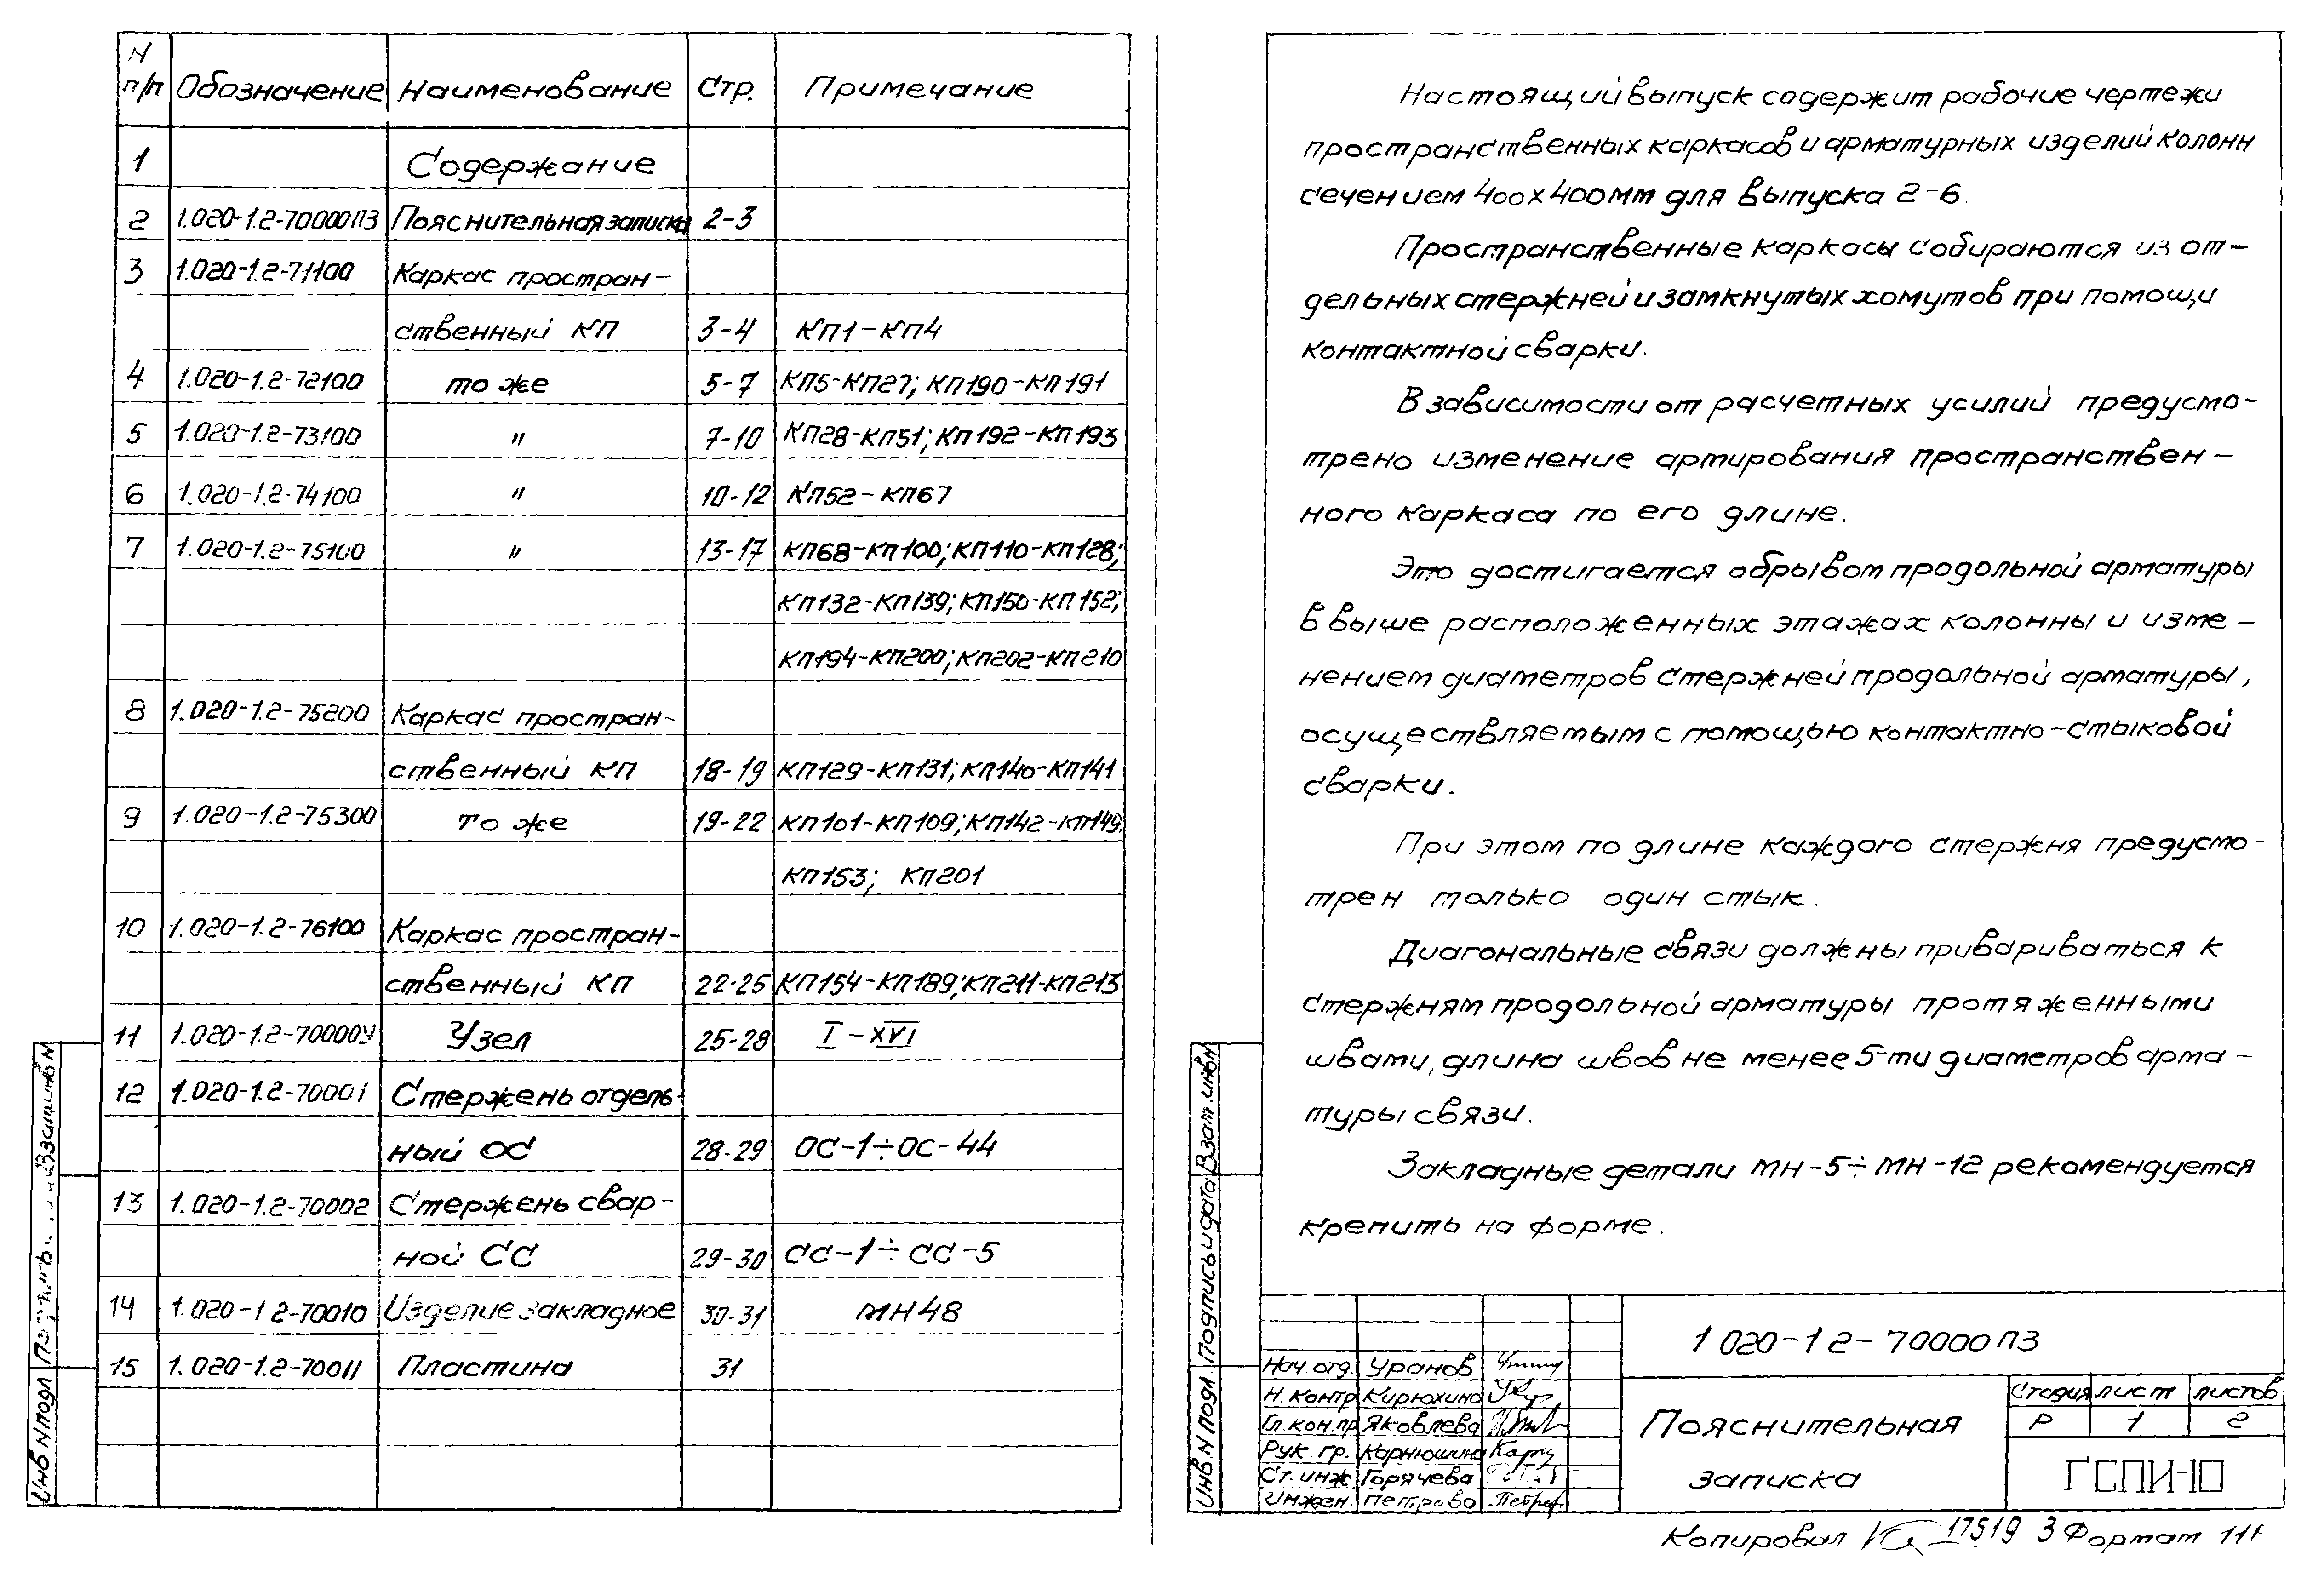 N п/п Обозначение Наименование Стр. Примечание
1 Содержание
2 1.020-1.2-70000ПЗ Пояснительная записка 2-3
3 1.020-1.2-71100 Каркас простран-
ственный КП 3-4 КП1-КП4
4 1.020-1.2-72100 то же 5-7 КП5-КП27; КП190-КП191
5 1.020-1.2-73100 " 7-10 КП28-КП51; КП192-КП193
6 1.020-1.2-74100 " 10-12 КП52-КП67
7 1.020-1.2-75100 " 13-17 КП68-КП100; КП110-КП128;
КП132-КП139; КП150-КП152;
КП194-КП200; КП202-КП210
8 1.020-1.2-75200 Каркас простран-
ственный КП 18-19 КП129-КП131; КП140-КП141
9 1.020-1.2-75300 то же 19-22 КП101-КП109; КП142-КП149;
КП153; КП201
10 1.020-1.2-76100 Каркас простран-
ственный КП 22-25 КП154-КП189; КП211-КП213
11 1.020-1.2-70000У Узел 25-28 I-XVI
12 1.020-1.2-70001 Стержень отдель-
ный ОС 28-29 ОС-1÷ОС-44
13 1.020-1.2-70002 Стержень свар-
ной СС 29-30 СС-1÷СС-5
14 1.020-1.2-70010 Изделие закладное 30-31 МН48
15 1.020-1.2-70011 Пластина 31
Инв N подл
Настоящий выпуск содержит рабочие чертежи
пространственных каркасов и арматурных изделий колонн
сечением 400х400мм для выпуска 2-6.
Пространственные каркасы собираются из от-
дельных стержней и замкнутых хомутов при помощи
контактной сварки.
В зависимости от расчетных усилий предусмо-
трено изменение армирования пространствен-
ного каркаса по его длине.
Это достигается обрывом продольной арматуры
в выше расположенных этажах колонны и изме-
нением диаметров стержней продольной арматуры,
осуществляемым с помощью контактно-стыковой
сварки.
При этом по длине каждого стержня предусмо-
трен только один стык.
Диагональные связи должны привариваться к
стержням продольной арматуры протяженными
швами, длина швов не менее 5-ти диаметров арма-
туры связи.
Закладные детали МН-5÷МН-12 рекомендуется
крепить на форме.
Инв. N подл. Подпись и дата Взам. инв N
1 020-1 2-70000ПЗ
Нач. отд. Уранов
Н. контр Кирюхина
Гл. кон. пр Яковлева
Рук. гр. Карнюшина
Ст. инж Горячева
Инжен. Петрова
Пояснительная
записка
Стадия лист листов
Р 1 2
ГСПИ-10
Копировал 17519 3 Формат 11